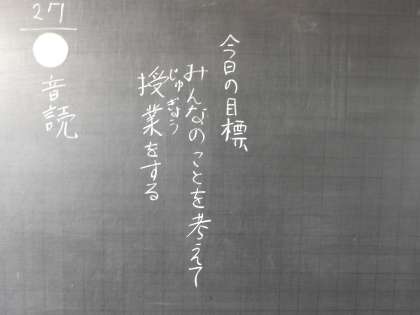 今日の目標
みんなのことを考えて
じゅぎょう
授業をする
27
音読